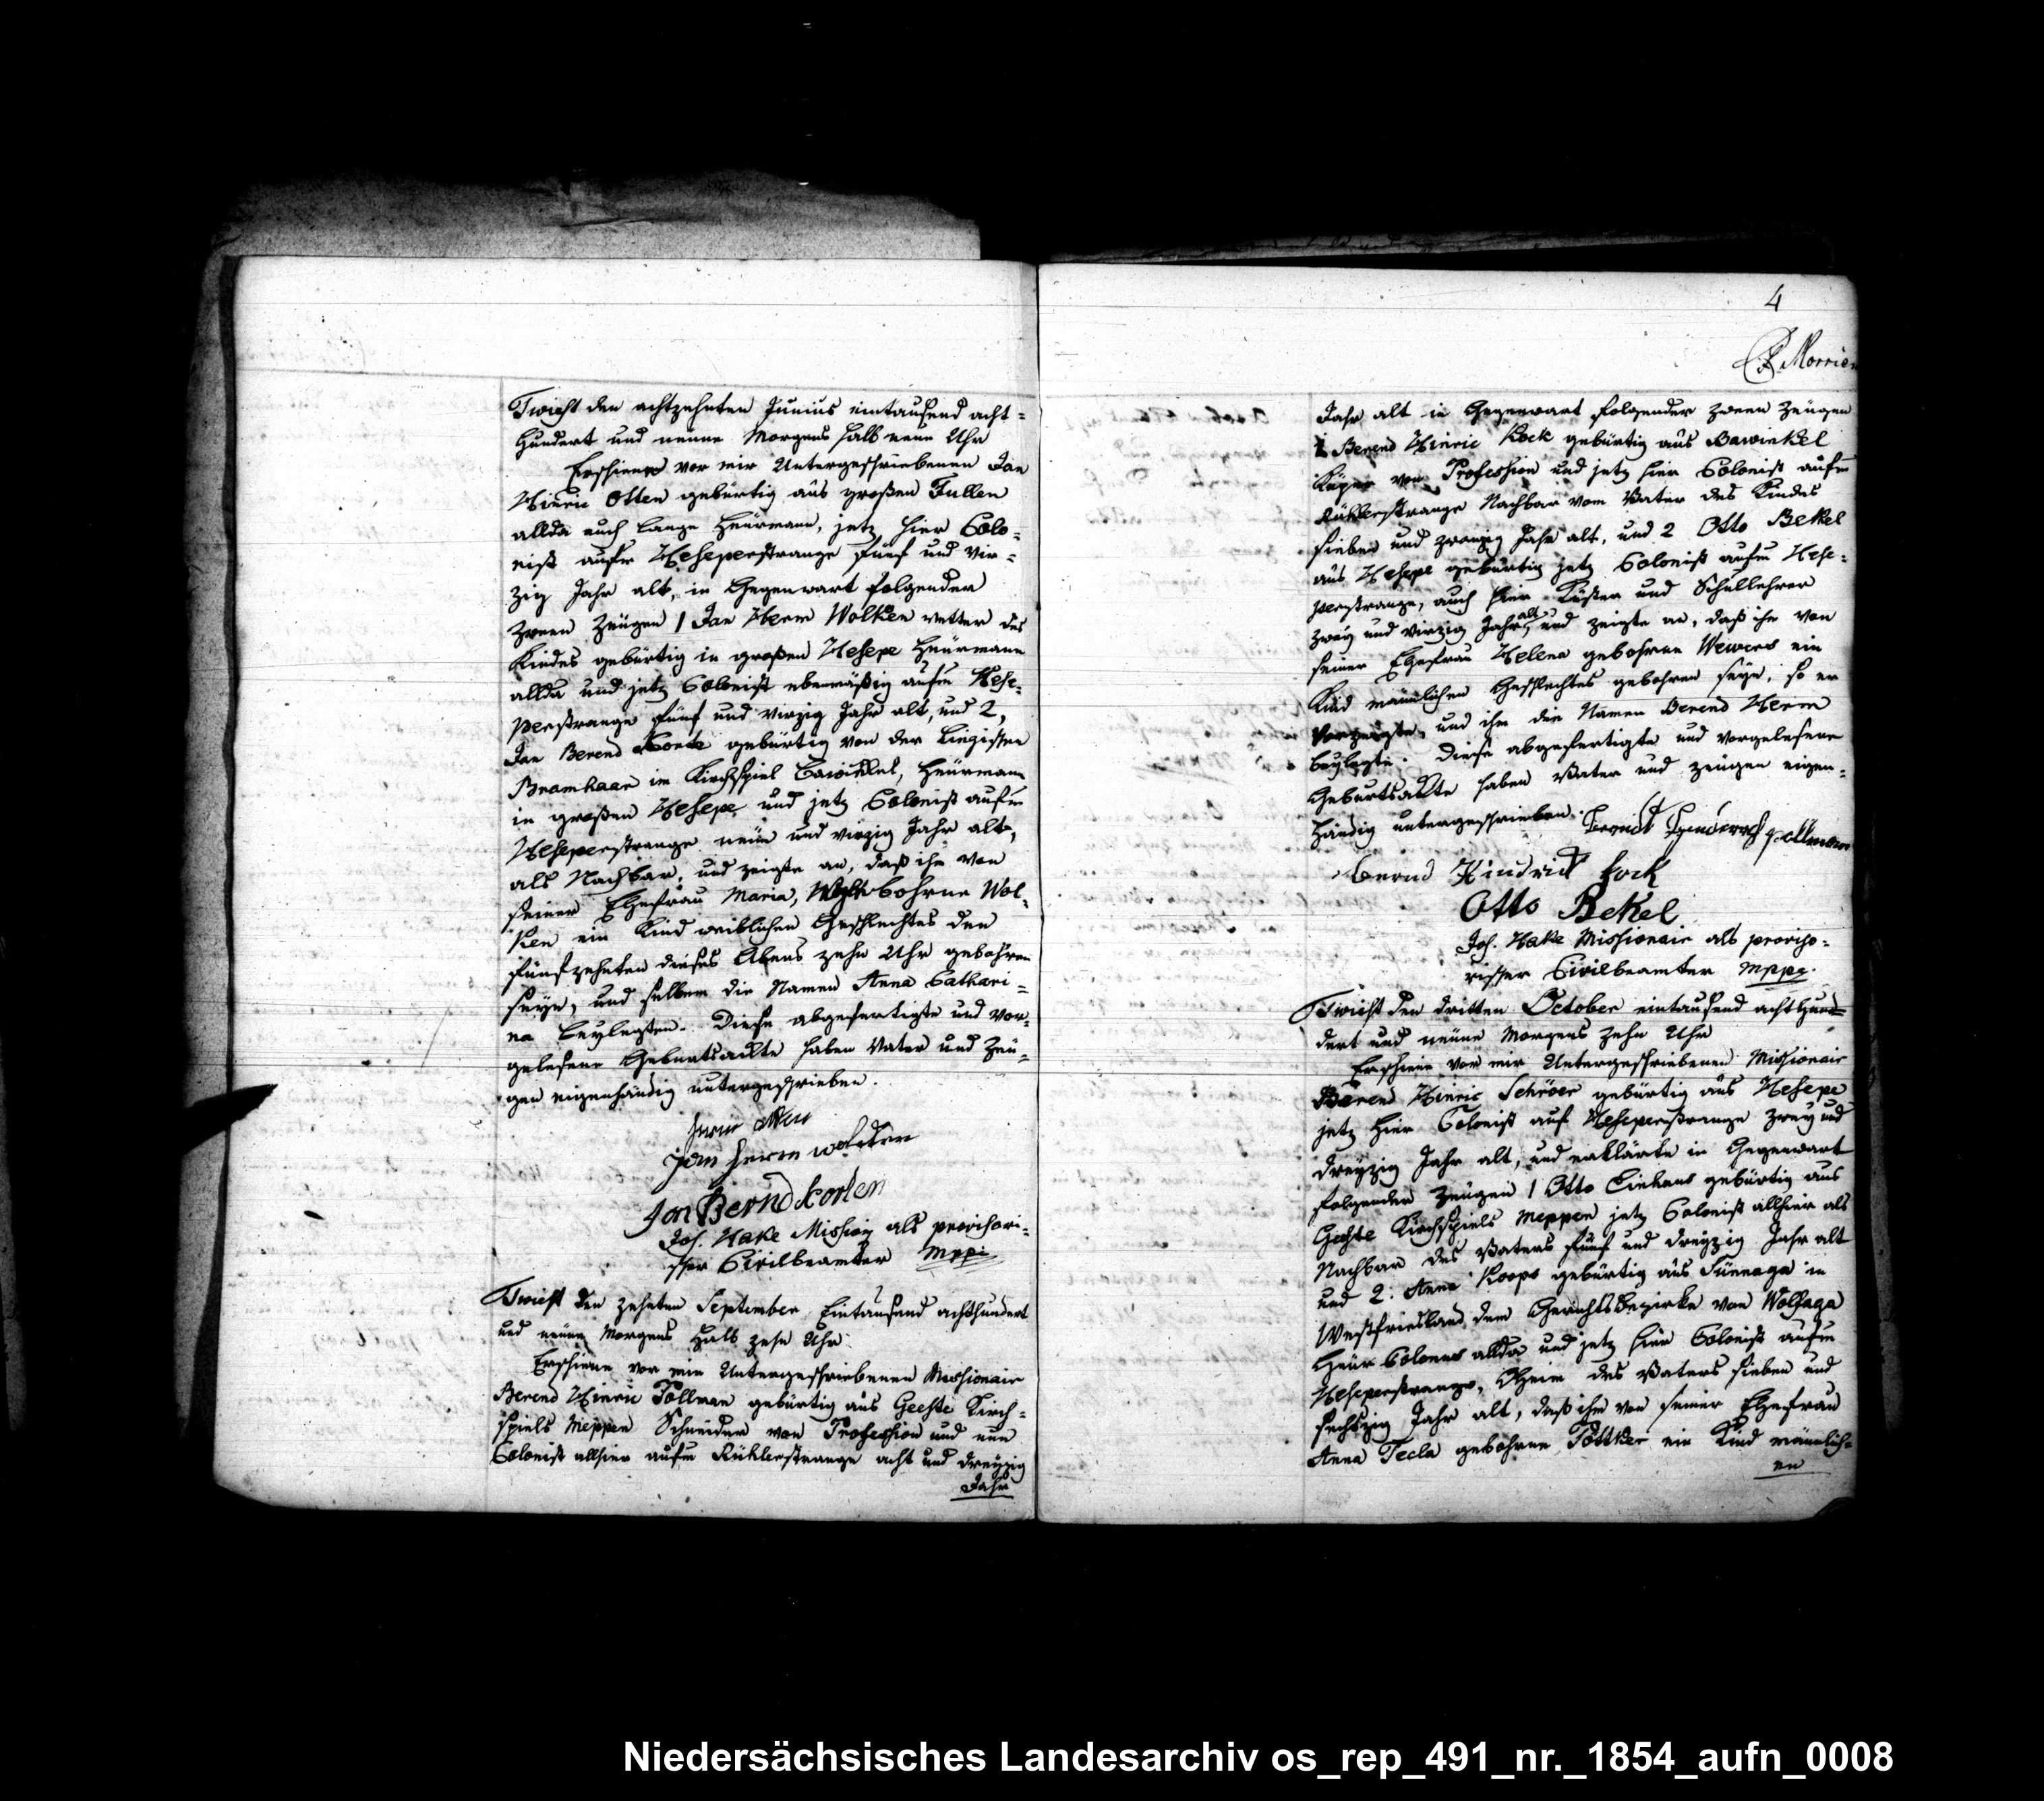 Twist den achtzehnten Junius eintausend acht-
hundert und neune Morgens halb neun Uhr
Erschiene vor mir Untergeschriebenen Jan
Hinric Otten gebürtig aus großen Fullen
allda auch lange Heürmann, jetz hier Colo-
nist aufm Heseperstrange fünf und vir-
zig Jahr alt, in Gegenwart folgender
zween Zeügen 1 Jan Herm Wolken vetter des
Kindes gebürtig in großen Hesepe Heürmann
allda und jetz Colonist ebenmäßig aufm Hese-
perstrange fünf und virzig Jahr alt, und 2,
Jan Berend gebürtig von der Lingisten
Bramhaar im Kirchspiel Bawinkel, Heürmann
in großen Hesepe, und jetz Colonist aufm
Heseperstrange neün und virzig Jahr alt,
als Nachbar, und zeigte an, daß ihm von
seiner Ehefrau Maria, gebohrne Wol-
ken ein Kind weiblichen Geschlechtes den
fünfzehnten dieses Abens zehn Uhr gebohren
seye, und selbem die Namen Anna Cathari-
na beylegten. Diese abgefertigte und vor-
gelesene Geburtsackte haben Vater und Zeü-
gen eigenhändig untergeschrieben.
otten
jan herm wolken
Jan Bernd korten
Jos. Hake Mission als provisori-
scher Civilbeamter mppi
Twist den zehnten September Eintausend achthundert
und neüne Morgens halb zehn Uhr
Erschiene vor mir Untergeschriebenen Missionair
Berend Hinric Töllman gebürtig aus Geeste Kirch-
spiels Meppen Schneider von Profession und nun
Colonist allhier aufm Rühlerstrange acht und dreyzig
Jahr
4
Morrien
Jahr alt in Gegenwart folgender zween Zeügen
1 Berend Hinric Kock gebürtig aus Bawinkel
Küper von Profession und jetz hier Colonist aufm
Rühlerstrange Nachbar vom Vater des Kindes
sieben und zwanzig Jahr alt, und 2 Otto Bekel
aus Hesepe gebürtig jetz Colonist aufm Hese-
perstrange, auch hier Küster und Schullehrer
zwey und virzig Jahr alt, und zeigte an, daß ihm von
seiner Ehefrau Helena gebohrne Wewers ein
Kind männlichen Geschlechtes gebohren seye, so er
vorzeigte, und ihm die Namen Berend Herm
beylegte. Diese abgefertigte und vorgelesene
Geburtsackte haben Vater und Zeügen eigen-
händig untergeschrieben.
Bernd Hindrick kock
Otto Bekel
Jos. Hake Missionair als proviso-
rischer Civilbeamter mppr.
Twist den dritten October eintausend achthun-
dert und neüne Morgens zehn Uhr
Erschiene vor mir Untergeschriebenen Missionair
Berend Hinric Schröer gebürtig aus Hesepe
jetz hier Colonist auf Heseperstrange zwey und
dreyzig Jahr alt, und erklärte in Gegenwart
folgender Zeügen 1 Otto Liekens gebürtig aus
Geeste Kirchspiels Meppen jetz Colonist allhier als
Nachbar des Vaters fünf und dreyzig Jahr alt
und 2. Anne Koops gebürtig aus Sünnaga in
Westfriesland dem Gerichtsbezirke von Wolfaga
Heür Colonus allda und jetz hier Colonist aufm
Heseperstrange, Oheim des Vaters sieben und
sechszig Jahr alt, daß ihm von seiner Ehefrau
Anna Tecla gebohrne Töttker ein Kind männlich-
en
Niedersächsisches Landesarchiv os_rep_491_nr._1854_aufn_0008